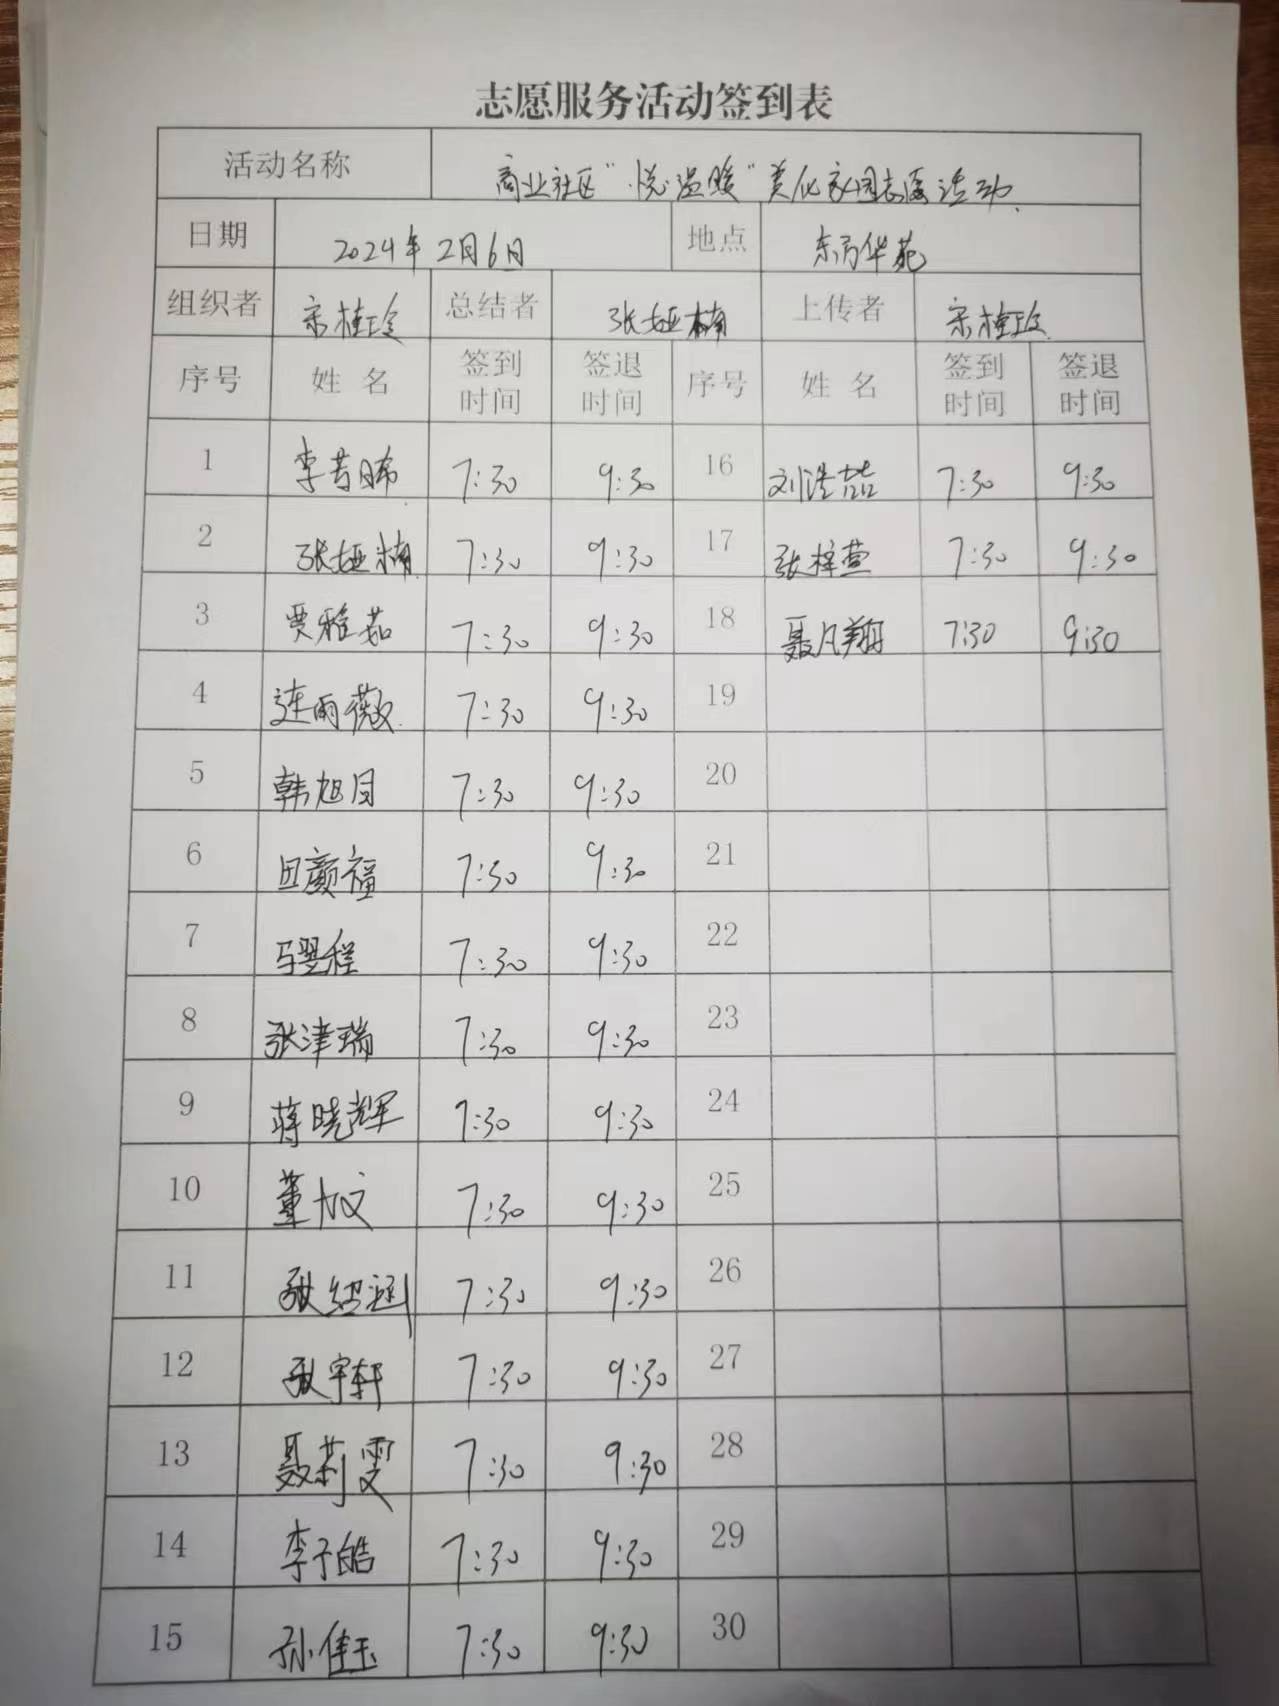 志愿服务活动签到表
活动名称 商业社区“悦·温暖”美化家园志愿活动.
日期 2024年2月6日 地点 东方华苑
组织者 宋桂玲 总结者 张娅楠 上传者 宋桂玲
序号 姓名 签到时间 签退时间 序号 姓名 签到时间 签退时间
1 李昔晞 7:30 9:30 16 刘浩喆 7:30 9:30
2 张娅楠 7:30 9:30 17 张梓萱 7:30 9:30
3 贾雅茹 7:30 9:30 18 聂凡翔 7:30 9:30
4 连雨薇 7:30 9:30 19
5 韩旭 7:30 9:30 20
6 田颜福 7:30 9:30 21
7 马翌程 7:30 9:30 22
8 张津瑞 7:30 9:30 23
9 蒋晓辉 7:30 9:30 24
10 董文 7:30 9:30 25
11 张绍涵 7:30 9:30 26
12 张宇轩 7:30 9:30 27
13 聂莉雯 7:30 9:30 28
14 李子皓 7:30 9:30 29
15 孙佳玉 7:30 9:30 30